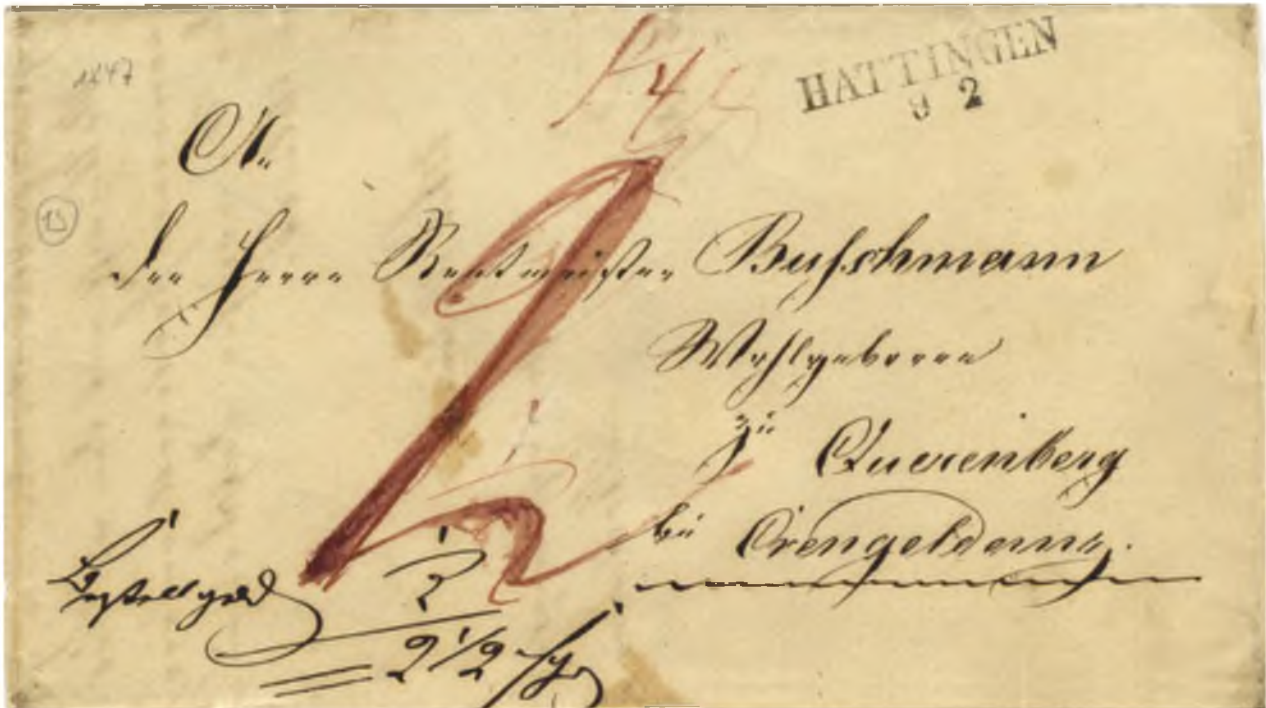 1847
HATTINGEN
9 2
An
den Herrn Rentmeister Buschmann
Wohlgeboren
zu Querenberg
bei Crengeldanz.
Bestellgeld
2 1/2 Sgr